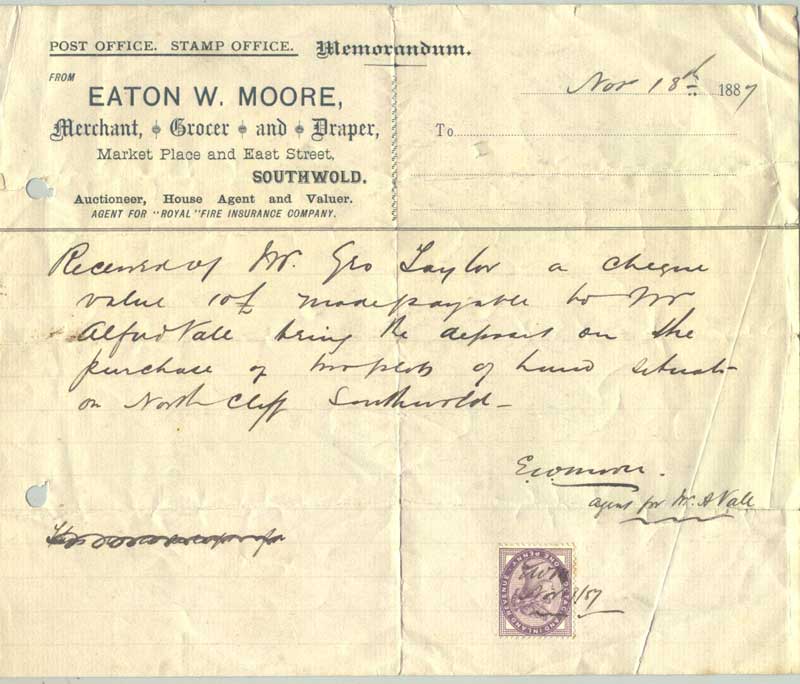 POST OFFICE. STAMP OFFICE. Memorandum.
FROM
EATON W. MOORE,
Merchant, Grocer and Draper,
Market Place and East Street,
SOUTHWOLD.
Auctioneer, House Agent and Valuer.
AGENT FOR "ROYAL" FIRE INSURANCE COMPANY.
Nov 18th 1887
To
Received of Mr. Geo Taylor a cheque
value 10£ made payable to Mr
Alfred Vale being the deposit on the
purchase of two plots of land situate
on North Cliff Southwold -
E.W. Moore.
agent for Mr. A Vale
POSTAGE AND INLAND REVENUE
ONE PENNY
EWM
Nov 18/87